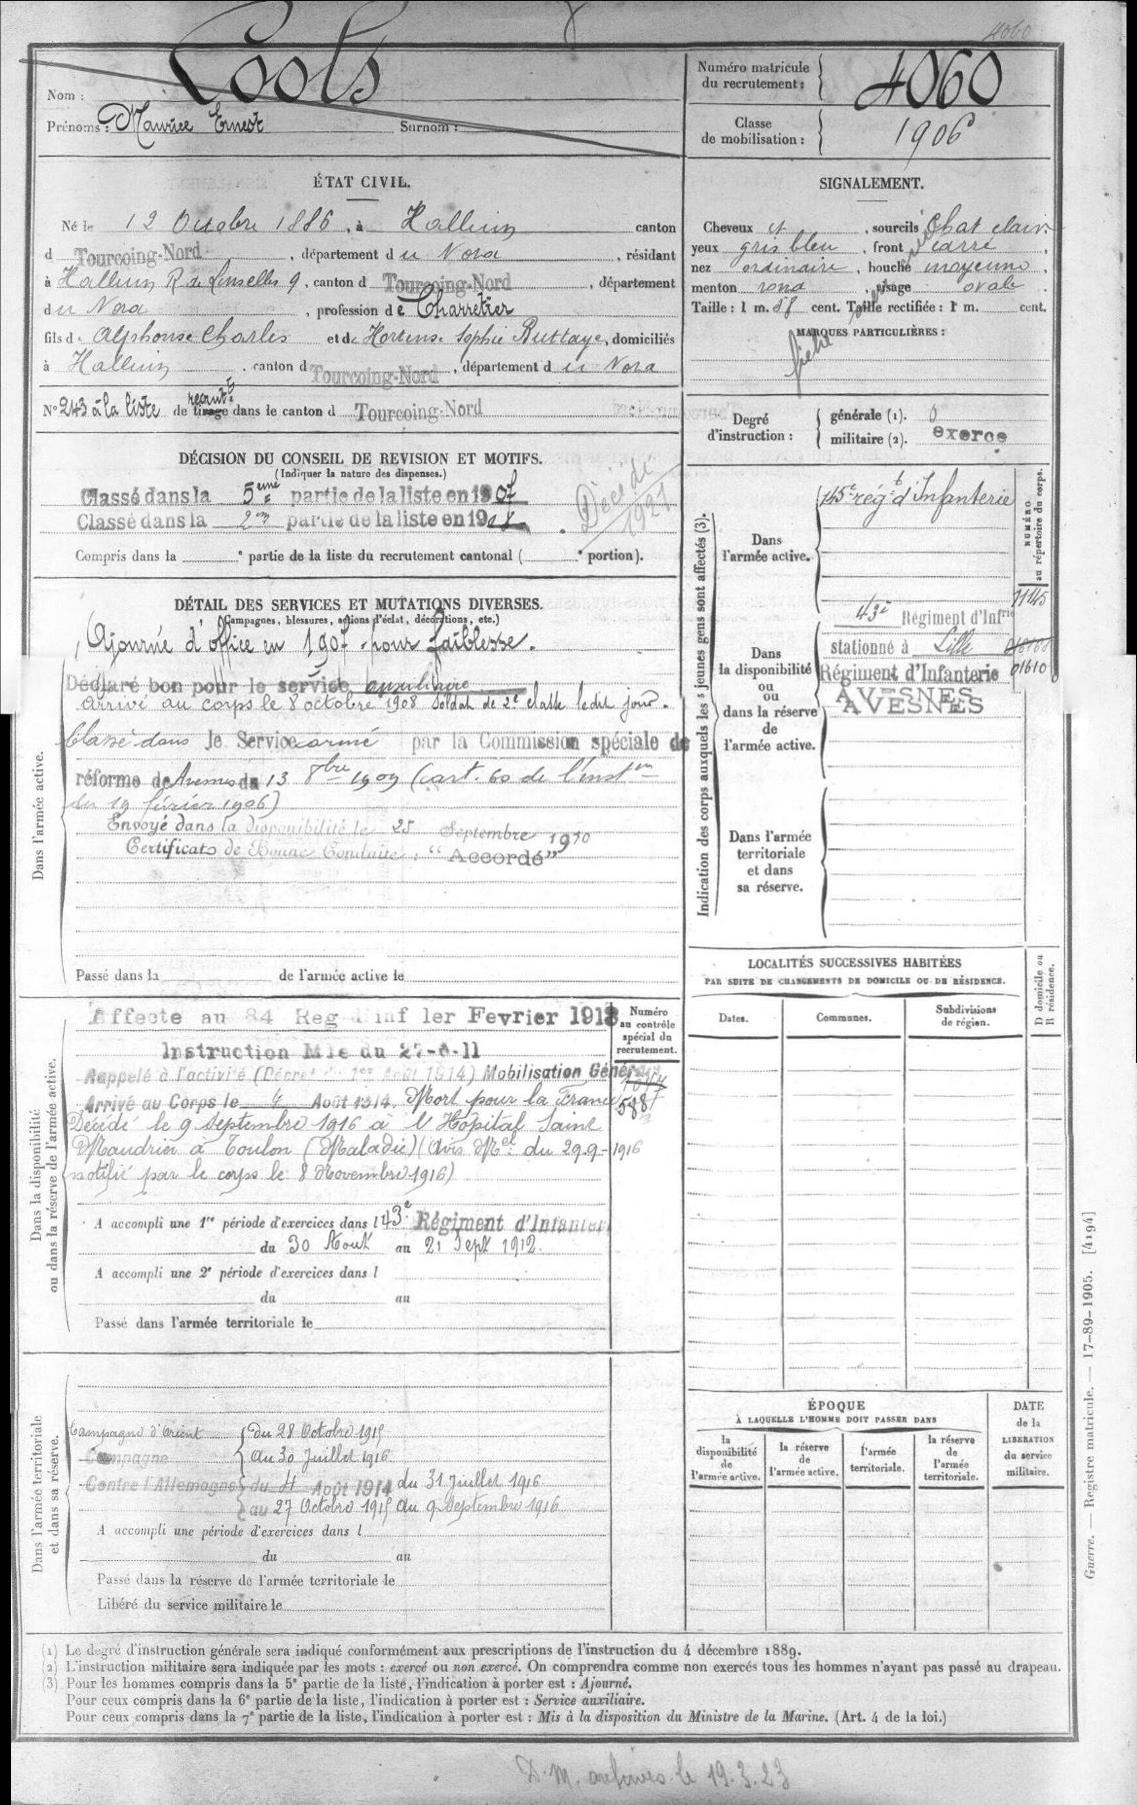 4060
Cools
Nom :
Prénoms : Maurice Ernest Surnom :
Numéro matricule du recrutement : 4060
Classe de mobilisation : 1906
ÉTAT CIVIL.
Né le 12 Octobre 1886, à Halluin canton
d Tourcoing-Nord, département du Nord, résidant
à Halluin R. de Linselles 9, canton d Tourcoing-Nord, département
du Nord, profession de Charretier
fils d. Alphonse Charles et de Hortense Sophie Buttaye, domiciliés
à Halluin, canton d Tourcoing-Nord, département du Nord
N° 243 à la liste de tirage recrutt dans le canton d Tourcoing-Nord
SIGNALEMENT.
Cheveux et, sourcils Chat clair.
yeux gris bleu, front carré
nez ordinaire, bouche moyenne,
menton rond, visage ovale.
Taille : 1 m. 58 cent. Taille rectifiée : 1 m. cent.
MARQUES PARTICULIÈRES :
Degré d'instruction : générale (1). 0
militaire (2). exerce
DÉCISION DU CONSEIL DE REVISION ET MOTIFS.
(Indiquer la nature des dispenses.)
Classé dans la 5eme partie de la liste en 1907
Classé dans la 2me partie de la liste en 1908
Décédé
1921
Compris dans la e partie de la liste du recrutement cantonal ( e portion).
DÉTAIL DES SERVICES ET MUTATIONS DIVERSES.
(Campagnes, blessures, actions d'éclat, décorations, etc.)
Ajourné d'office en 1907 pour faiblesse.
Déclaré bon pour le service auxiliaire
Arrivé au corps le 8 octobre 1908 Soldat de 2e classe ledit jour.
Classé dans le Service armé par la Commission spéciale de
réforme de Avesnes du 13 8bre 1909 (art. 60 de l'inston
du 19 février 1906)
Envoyé dans la disponibilité le 25 Septembre 1910
Certificats de Bonne Conduite : "Accordé"
Dans l'armée active.
Passé dans la de l'armée active le
Indication des corps auxquels les jeunes gens sont affectés (3).
Dans l'armée active.
145e régt d'Infanterie
NUMÉRO au répertoire du corps.
11145
Dans la disponibilité ou dans la réserve de l'armée active.
43e Régiment d'Infrie
stationné à Lille
Régiment d'Infanterie 01610
AVESNES
AVESNES
Dans l'armée territoriale et dans sa réserve.
LOCALITÉS SUCCESSIVES HABITÉES
PAR SUITE DE CHANGEMENTS DE DOMICILE OU DE RÉSIDENCE.
Dates. Communes. Subdivisions de région. D domicile ou R résidence.
Dans la disponibilité ou dans la réserve de l'armée active.
Affecte au 84 Reg d'inf 1er Fevrier 1913
Instruction Mle du 27-6-11
Numéro au contrôle spécial du recrutement.
Rappelé à l'activité (Décret du 1er Août 1914) Mobilisation Générale
Arrivé au Corps le 4 Août 1914. Mort pour la France
588
Décédé le 9 Septembre 1916 à l'Hôpital Saint
Maudrier à Toulon (Maladie) (Avis Mel du 29-9-1916
notifié par le corps le 8 Novembre 1916)
A accompli une 1re période d'exercices dans l 43e Régiment d'Infanterie
du 30 Aout au 21 Sept 1912.
A accompli une 2e période d'exercices dans l
du au
Passé dans l'armée territoriale le
Dans l'armée territoriale et dans sa réserve.
Campagne d'Orient du 28 Octobre 1915
Campagne au 30 Juillet 1916.
Contre l'Allemagne du 4 Août 1914 du 31 Juillet 1916
au 27 Octobre 1915 du 9 Septembre 1916
A accompli une période d'exercices dans l
du au
Passé dans la réserve de l'armée territoriale le
Libéré du service militaire le
ÉPOQUE
À LAQUELLE L'HOMME DOIT PASSER DANS
la disponibilité de l'armée active.
la réserve de l'armée active.
l'armée territoriale.
la réserve de l'armée territoriale.
DATE de la LIBÉRATION du service militaire.
Guerre. — Registre matricule. — 17-89-1905. [4194]
(1) Le degré d'instruction générale sera indiqué conformément aux prescriptions de l'instruction du 4 décembre 1889.
(2) L'instruction militaire sera indiquée par les mots : exercé ou non exercé. On comprendra comme non exercés tous les hommes n'ayant pas passé au drapeau.
(3) Pour les hommes compris dans la 5e partie de la liste, l'indication à porter est : Ajourné.
Pour ceux compris dans la 6e partie de la liste, l'indication à porter est : Service auxiliaire.
Pour ceux compris dans la 7e partie de la liste, l'indication à porter est : Mis à la disposition du Ministre de la Marine. (Art. 4 de la loi.)
D.M. archives le 19.3.23